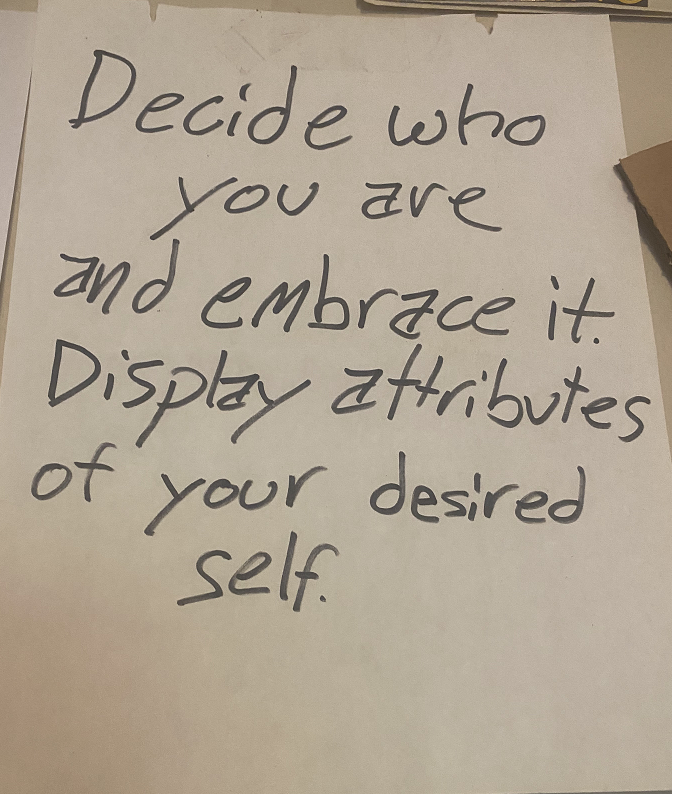 Decide who
you are
and embrace it.
Display attributes
of your desired
self.